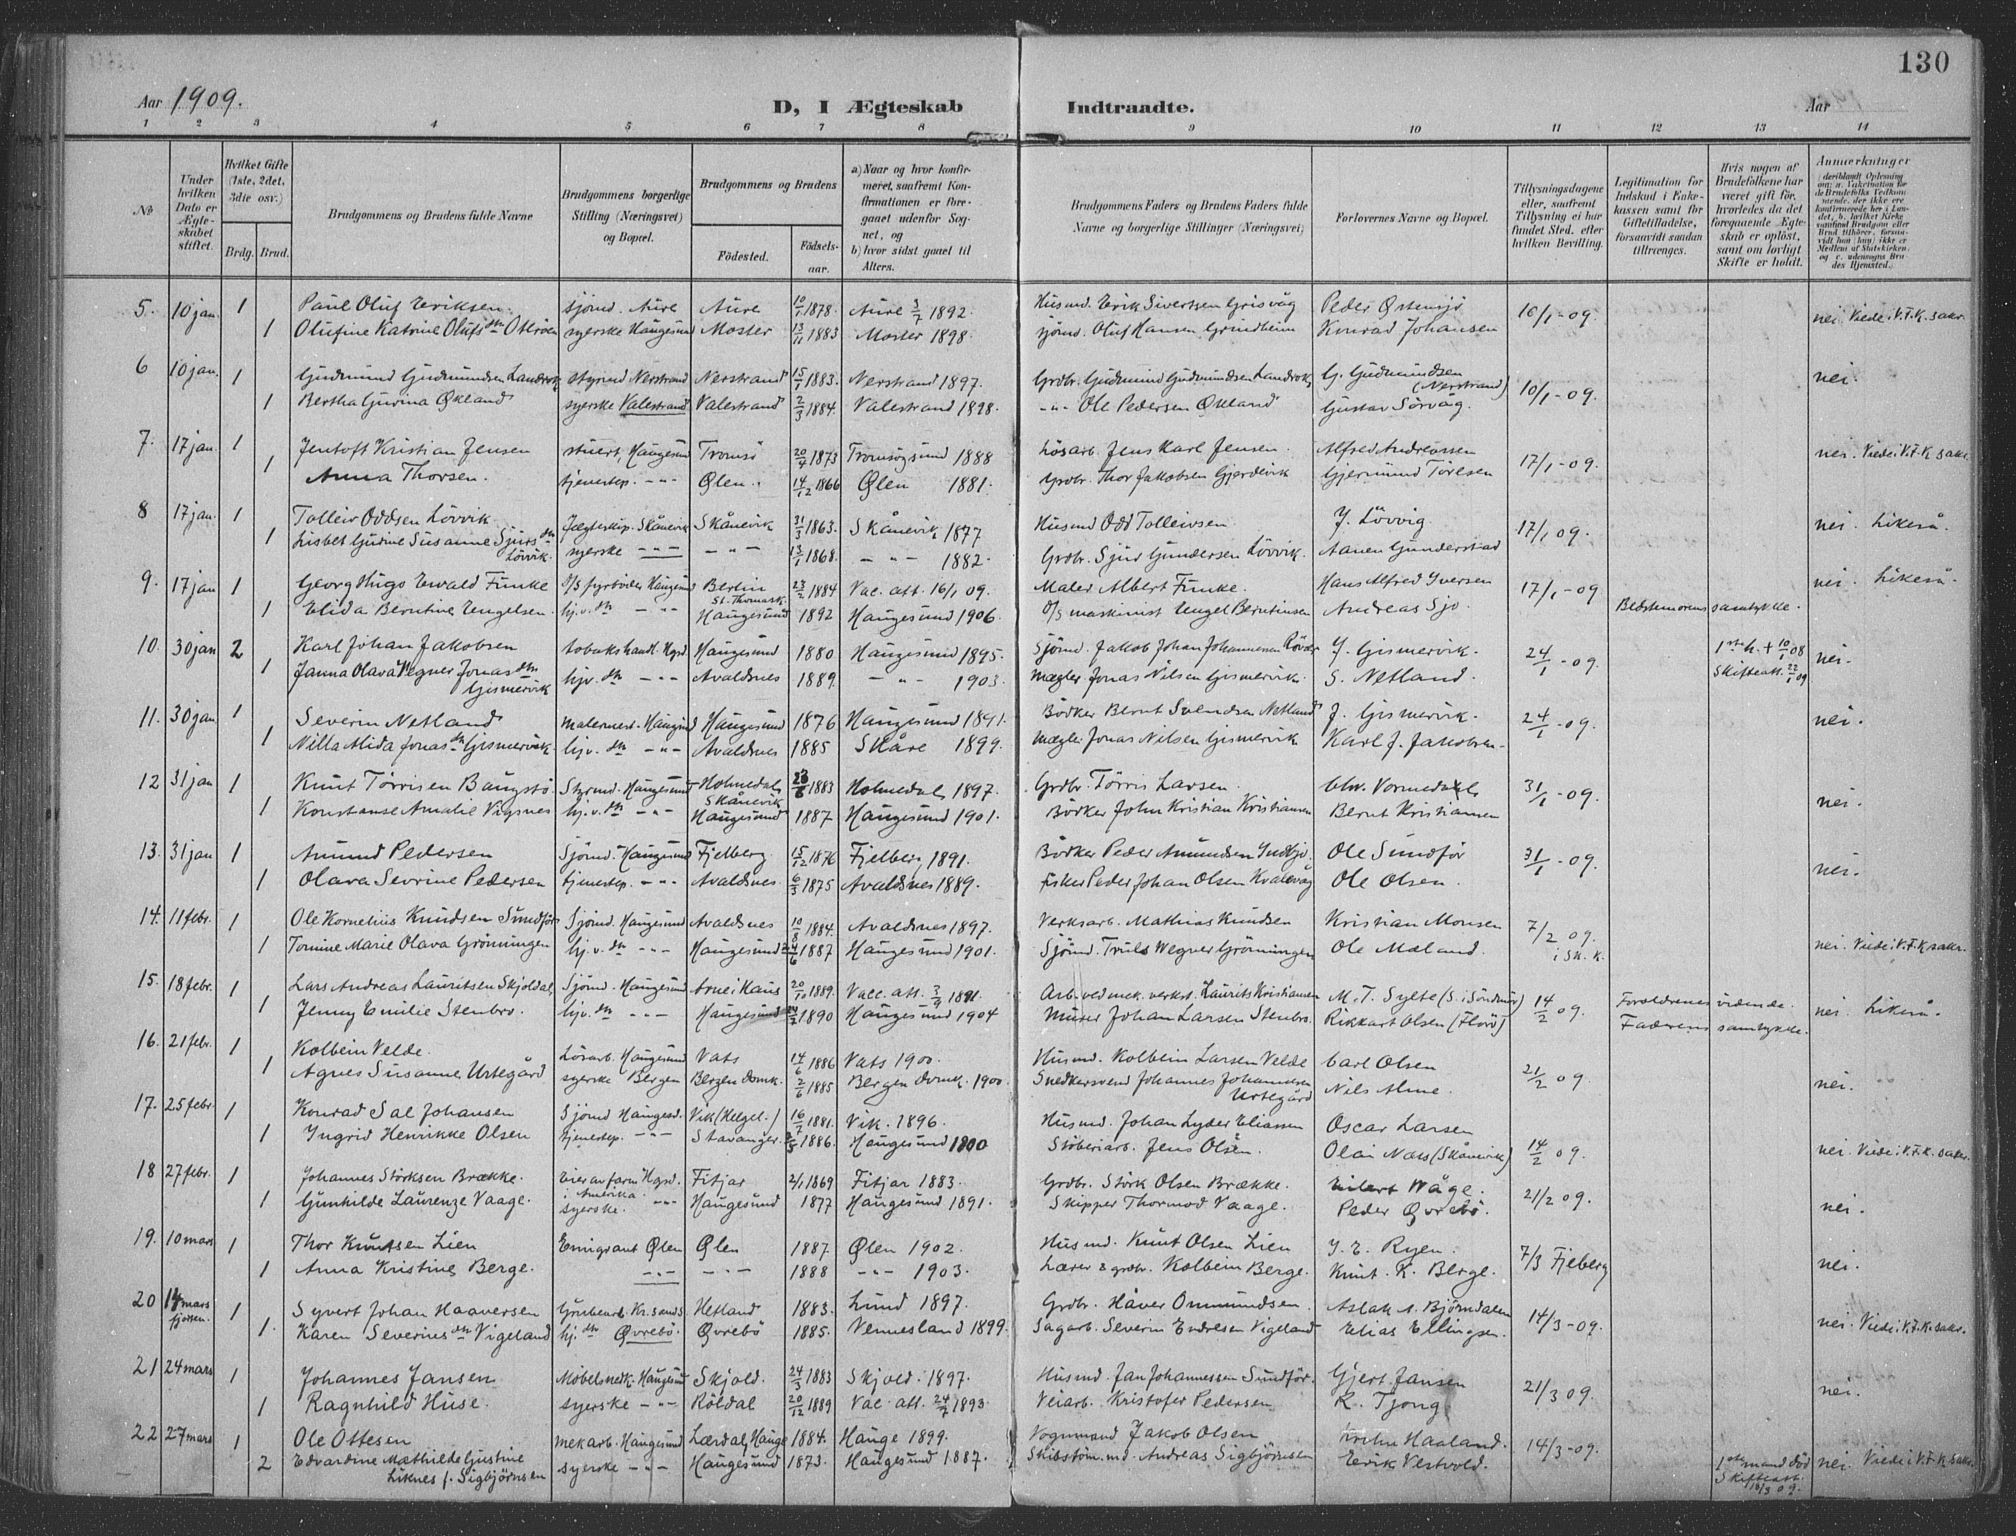 130
Aar 1909.
D, I Ægteskab Indtraadte.
Aar
1 2 3 4 5 6 7 8 9 10 11 12 13 14
No
Under hvilken Dato er Ægteskabet stiftet.
Hvilket Gifte (1ste, 2det, 3die osv.)
Brdg. Brud.
Brudgommens og Brudens fulde Navne
Brudgommens borgerlige Stilling (Næringsvei) og Bopæl.
Brudgommens og Brudens
Fødested.
Fødselsaar.
a) Naar og hvor konfirmeret, saafremt Konfirmationen er foregaaet udenfor Sognet, og
b) hvor sidst gaaet til Alters.
Brudgommens Faders og Brudens Faders fulde Navne og borgerlige Stillinger (Næringsvei)
Forlovernes Navne og Bopæl.
Tillysningsdagene eller, saafremt Tillysning ei har fundet Sted, efter hvilken Bevilling.
Legitimation for Indskud i Enkekassen samt for Giftetilladelse, forsaavidt saadan tiltrænges.
Hvis nogen af Brudefolkene har været gift før, hvorledes da det foregaaende Ægteskab er opløst, samt om lovligt Skifte er holdt.
Anmerkninger
5. 10 jan. 1 Paul Oluf Eriksen. sjømd. Aure Aure 10/1 1878. Aure 3/7 1892. Husmd. Erik Sivertsen Grisvåg Peder Østensjö 10/1-09. nei. Viede i V.F.K. sakr.
1 Olufine Katrine Olufsdtr Otteröen syerske Haugesund Moster 13/11 1883 Moster 1898. sjömd. Oluf Hansen Grindheim Konrad Johansen
6 10 jan. 1 Gudmund Gudmundsen Landrok styrmd Nerstrand Nerstrand 15/1 1883. Nerstrand 1897. Grdbr. Gudmund Gudmundsen Landrok G. Gudmundsen (Nerstrand) 10/1-09. nei.
1 Bertha Gurina Økland syerske Valestrand Valestrand 2/3 1884. Valestrand 1898. -"- Ole Pedersen Økland Gustav Sörvåg.
7. 17 jan. 1 Jentoft Kristian Jensen stuert, Haugesund Tromsö 20/4 1873 Tromsøysund 1888 Lösarb. Jens Karl Jensen. Alfred Andreassen 17/1-09. nei. Viede i V.F.K sakr.
1 Anna Thorsen. tjenestep. -"- Ølen. 14/12 1866 Ølen 1881. Grdbr. Thor Jakobsen Gjerdevik Gjermund Töresen
8 17 jan. 1 Tolleiv Oddsen Lövvik Jægteskip. Skånevik Skånevik 31/3 1863. Skånevik 1877 Husmd Odd Tolleivsen. J. Lövvig 17/1 09. nei. Likeså.
1 Lisbet Gurine Susanne Sjursdtr Lövik. syerske -"- -"- 13/1 1868. -"- 1882. Grdbr. Sjur Gundersen Lövvik. Aanen Gunderstad
9. 17 jan 1 Georg Hugo Ewald Funke D/S fyrböder Haugesund Berlin St. Thomask. 23/2 1884 Vac. att. 16/1 09. Maler Albert Funke. Hans Alfred Iversen 17/1-09 nei. Likeså.
1 Elida Berntine Engelsen. hj.v. dtr -"- Haugesund 1892 Haugesund 1906. D/S maskinist Engel Berntinsen Andreas Sjo. Bedstemorens samtykke.
10. 30 jan 2 Karl Johan Jakobsen tobakshandl. Hgsd Haugesund 1880 Haugesund 1895. Sjömd. Jakob Johan Johannesen Røvær J. Gismervik. 24/1-09. 1ste h. + 10/1 08 Skifteatt. 22/1 09 nei.
1 Janna Olava Wegner Jonasdtr Gismervik hjv. dtr -"- Avaldsnes 1889. -"- 1903. Mægler Jonas Nilsen Gismervik. S. Netland.
11. 30 jan. 1 Severin Netland malermest. Haugesund Haugesund 1876 Haugesund 1891. Bödker Bernt Svendsen Netland J. Gismervik. 24/1-09. nei.
1 Nilla Alida Jonasdtr Gismervik. hj.v. dtr -"- Avaldsnes 1885 Skåre 1899. Mægler Jonas Nilsen Gismervik Karl J. Jakobsen.
12 31 jan 1 Knut Törrisen Baugstö Styrmd. Haugesund Holmedal, Skånevik 23/6 1883 Holmedal, 1897. Grdbr. Törris Larsen. Chr. Vormedal 31/1-09. nei.
1 Konstanse Amalie Vignes hj.v. dtr -"- Haugesund 1887 Haugesund 1901. Bödker John Kristian Kristiansen Bernt Kristiansen
13. 31 jan 1 Amund Pedersen Sjömd. Haugesund Fjelberg 15/12 1876 Fjelberg, 1891. Bödker Peder Amundsen Indbjo. Ole Sundför 31/1-09. nei.
1 Olava Sevrine Pedersen tjenestep. -"- Avaldsnes. 6/3 1875 Avaldsnes 1889. fisker Peder Johan Olsen Kvalevåg Ole Olsen.
14. 11 febr. 1 Ole Kornelius Knudsen Sundför Sjömd. Haugesund Avaldsnes 10/8 1884. Avaldsnes 1897. Verksarb. Mathias Knudsen Kristian Monsen 7/2 09. i Sk. k. nei. Viede i V.F.K. sakr.
1 Tomine Marie Olava Grönningen hj.v. dtr -"- Haugesund 6 1887 Haugesund 1901. Sjömd. Truls Wegner Grönningen Ole Mæland.
15. 18 febr. 1 Lars Andreas Lauritsen Skjoldal. Sjömd. Haugesund Arne i Haus 20/10 1889. Vacc. att. 3/7 1891. Arb. ved mek. verkst. Laurits Kristiansen M. T. Sylte (S. i Söndmör) 14/2 09. Forældrenes vidende. nei. Likeså.
1 Jenny Emilie Stenbro. hj.v. dtr -"- Haugesund 24/2 1890 Haugesund 1904 Murer Johan Larsen Stenbro. Rikkart Olsen (Florö) Faderens samtykke.
16. 21 febr. 1 Kolbein Velde. Lösarb. Haugesund Vats 14/6 1886 Vats 1900. Husmd. Kolbein Larsen Velde Carl Olsen 21/2 09. nei.
1 Agnes Susanne Urtegård syerske Bergen Bergen domk. 2/6 1885 Bergen domk. 1900. Snedkersvend Johannes Johannesen Urtegård Nils Alme.
17. 25 febr. 1 Konrad Sal Johansen Sjömd Haugesd. Vik (Helgel.) 16/7 1881. Vik. 1896. Husmd. Johan Lyder Eliassen Oscar Larsen 14/2 09. nei. Viede i V.F.K. sakr.
1 Ingrid Henrikke Olsen tjenestep. -"- Stavanger. 1886. Haugesund 1900 Stöberiarb. Jens Olsen. Olai Næss (Skånevik)
18 27 febr. 1 Johannes Störksen Brække. Eier av farm Hgsd. i Amerika. Fitjar 2/1 1869 Fitjar 1883. Grdbr. Störk Olsen Brække. Eilert Wåge. 21/2 09. nei.
1 Gunhilde Laurenze Vaage. syerske. -"- Haugesund 1877 Haugesund 1891. Skipper Thormod Vaage. Peder Øvrebö.
19. 10 mars 1 Thor Knutsen Lien Emigrant Ølen Ølen 1887. Ølen 1902. Husmd. Knut Olsen Lien J. E. Ryen. 7/3 Fjeberg nei.
1 Anna Kristine Berge. -"- -"- 1888 -"- 1903. Lærer & grdbr. Kolbein Berge. Knut. K. Berge.
20 14 mars 1 Syvert Johan Haaversen Grubearb. Kr.sands Hetland 1883. Lund 1897. Grdbr. Håver Ommundsen. Aslak A. Björndalen 14/3-09. nei. Viede i V.F.K. sakr.
1. Karen Severinsdtr Vigeland hj. dtr Øvrebö. Øvrebö 1885. Vennesland 1899. Sagarb. Severin Endresen Vigeland Elias Ellingsen.
21 24 mars 1 Johannes Jansen Möbelsnedk. Haugesund Skjold. 24/3 1883 Skjold. 1897. Husmd. Jan Johannessen Sundför. Gjert Jansen 21/3 09. nei.
1 Ragnhild Huse. syerske -"- Röldal 20/12 1889 Vac. att. 24/7 1893. Veiarb. Kristofer Pedersen R. Tjong
22 27 mars 1 Ole Ottesen mekarb. Haugesund Lærdal, Hauge 1884. Hauge 1899. Vognmand Jakob Olsen Haaland. 14/3-09.
2 Edvardine Mathilde Gustine Liknes f. Sigbjörnsen syerske -"- Haugesund 1873. Haugesund 1887. Skibstöm.md. Andreas Sigbjörnsen Erik Vestvold. 1ste mand död Skifteatt. 16/3 09. nei. Viede i V.F.K sakr.